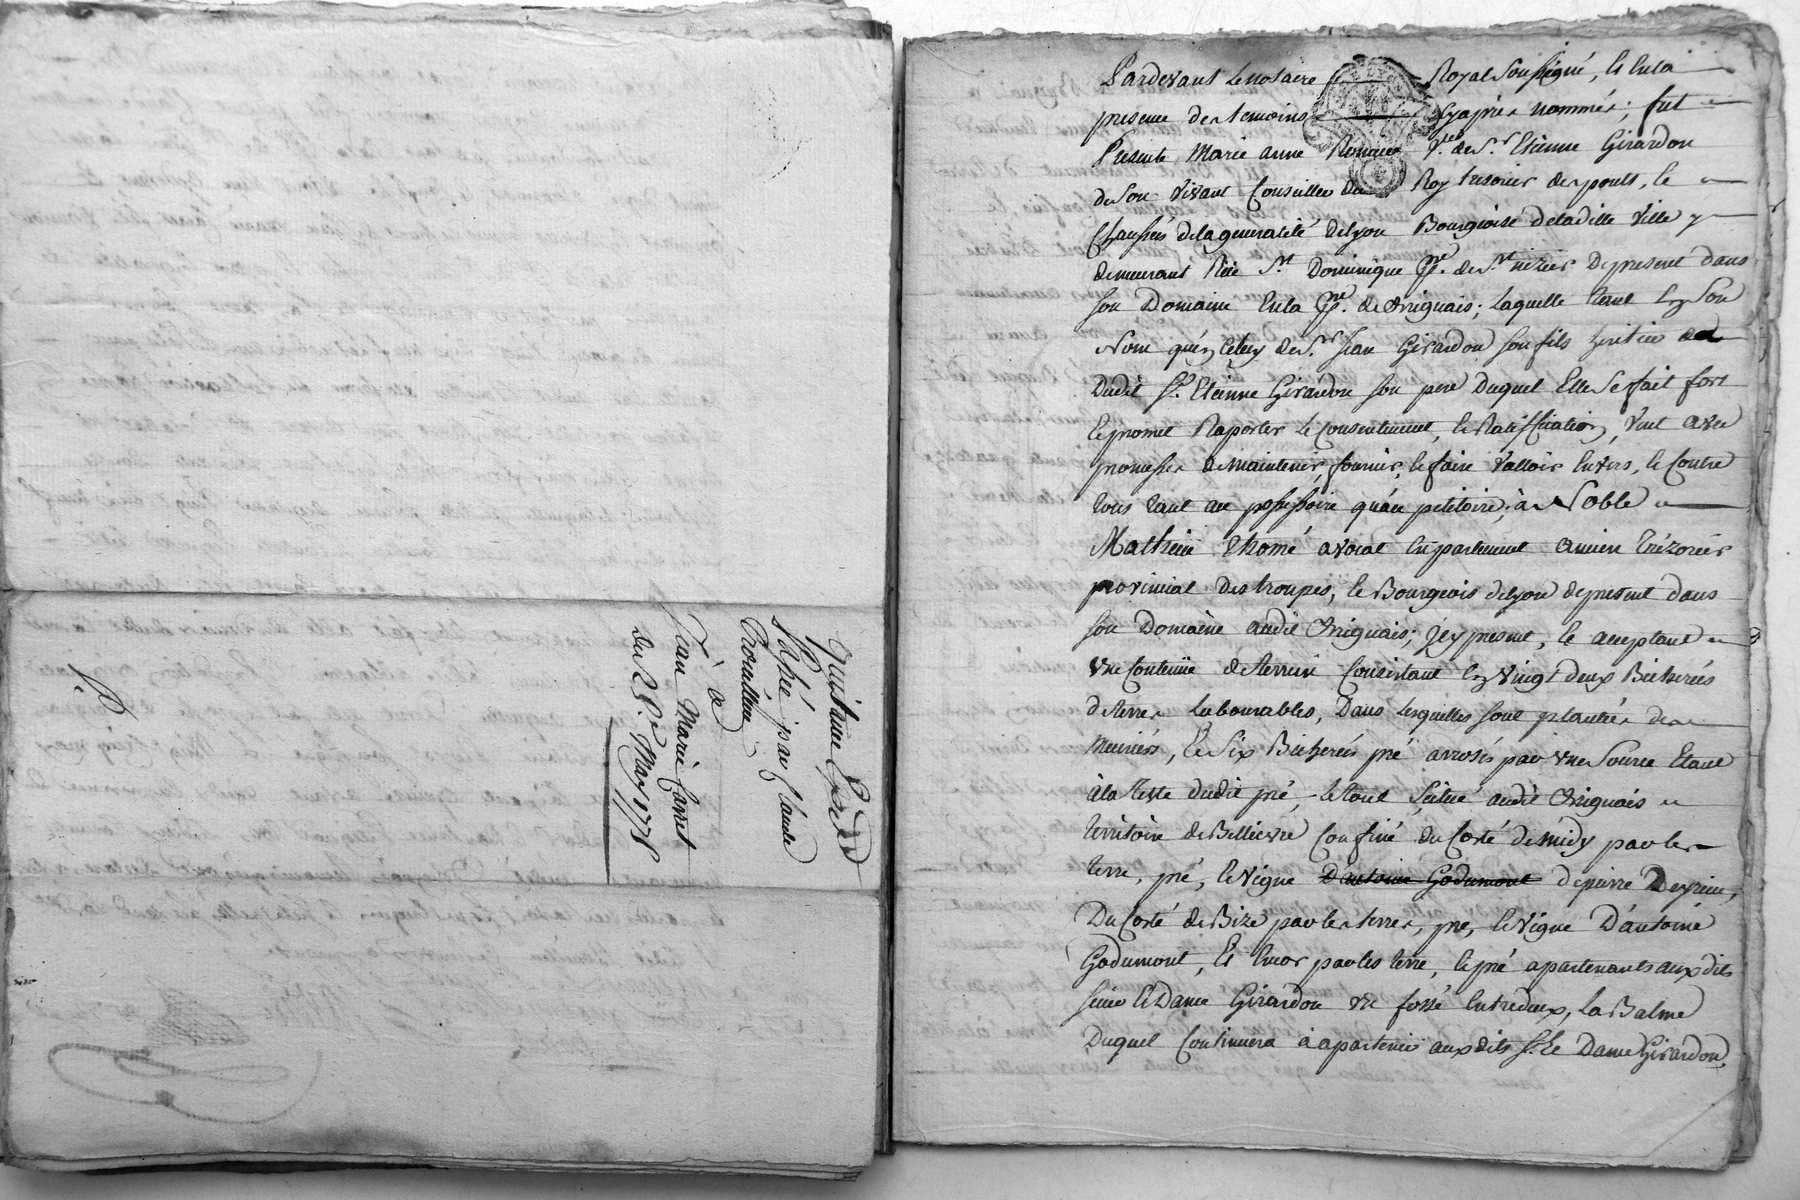 quittance Expéd
Passée par Claude
Trouilleux
à
Jean Marie Carret
du 28e. May 1778
Pardevant Le notaire Royal Soussigné, et En la
presence des temoins Cy après nommés; fut
Presente Marie anne Vve. de Sr. Etienne Girardon
de Son vivant Conseiller du Roy tresorier des ponts, et
Chaussées de la generalité de Lyon Bourgeoise de laditte Ville y
demeurant Rüe St. Dominique psse. de St. nizier De present dans
son Domaine En la psse. de Orignais; Laquelle tant En Son
Nom qu'en Celuy de Sr. Jean Girardon son fils heritier de
Dudit Sr. Etienne Girardon son pere Duquel Elle Se fait fort
et promet Raporter le Consentement, et Ratiffication, Vent avec
promesse de maintenir, fournir, et faire Valloir Envers, et Contre
tous tant au possessoire qu'au petitoire; à Noble
Mathieu thomé avocat En parlement ancien trézorier
provincial des troupes, et Bourgeois de Lyon de present dans
son Domaine audit Orignais; icy present, et acceptant
Une Contenüe de terrein Consistant En Vingt deux Bicherées
de terres Labourables, Dans Lesquelles sont plantés des
Meuriers, et Six Bicherées pré arrosés par une Source Etant
à la teste dudit pré, Le tout Scitué audit Orignais
territoire de Bellievre Confiné du Costé de midy par les
terre, pré, et Vigne D'antoine Godumont de pierre Deyrieu,
Du Costé de Bize par les terres, pré, et Vigne D'antoine
Godumont, Et Encor par les terre, et pré apartenants auxdits
sieur et Dame Girardon un fossé Entredeux, La Balme
Duquel Continuera à apartenir auxdits Sr. et Dame Girardon,